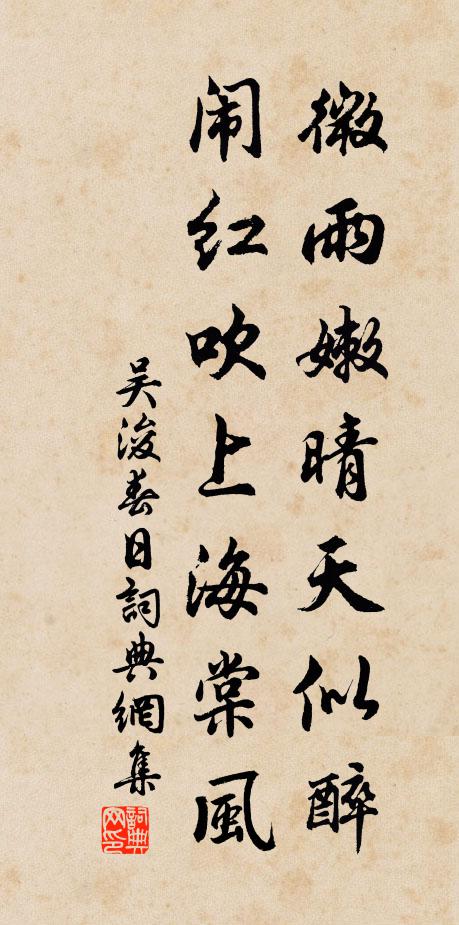 微雨嫩晴天似醉
闹红吹上海棠風
吴浚春日詞典網集
詞典网印